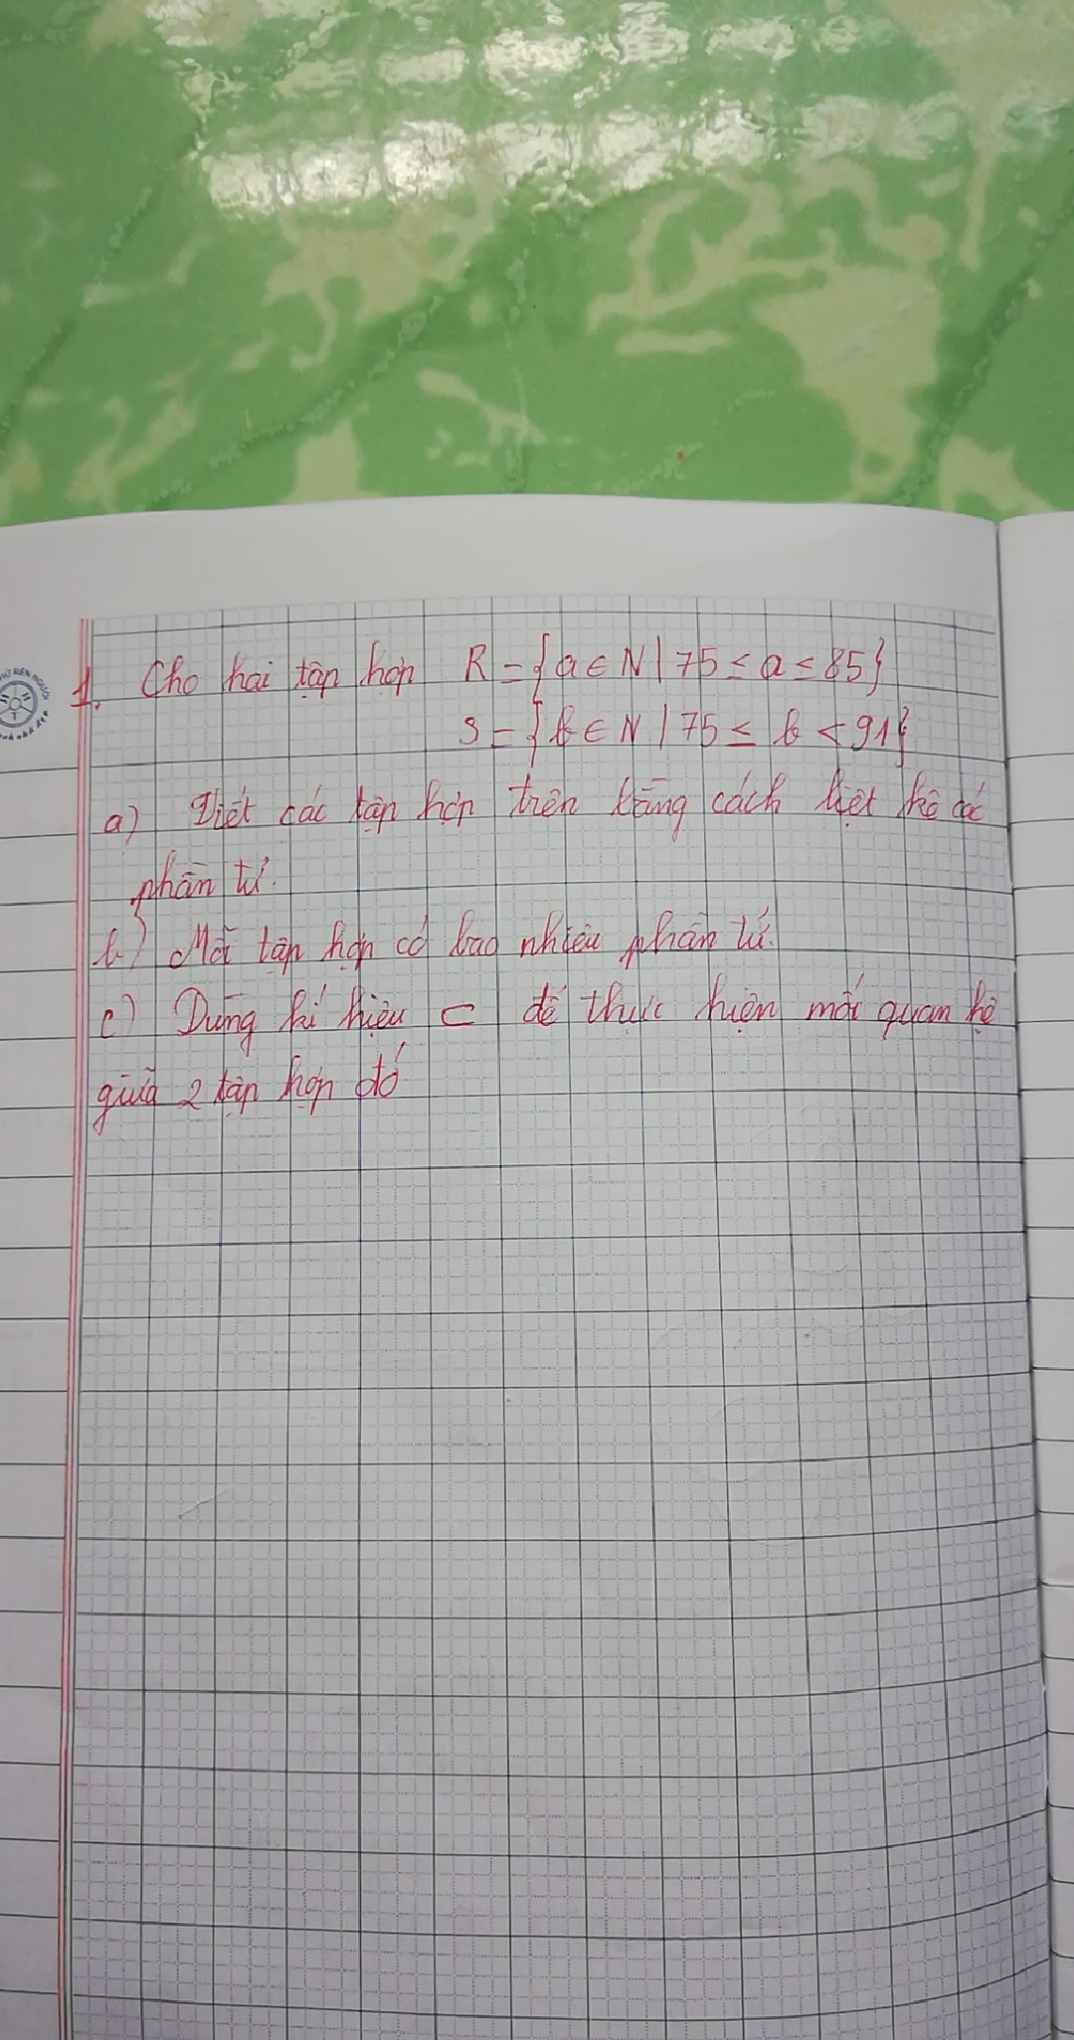 1. Cho hai tập hợp R = {a ∈ N | 75 ≤ a ≤ 85}
S = {b ∈ N | 75 ≤ b < 91}
a) Viết các tập hợp trên bằng cách liệt kê các
phần tử.
b) Mỗi tập hợp có bao nhiêu phần tử.
c) Dùng kí hiệu ⊂ để thực hiện mối quan hệ
giữa 2 tập hợp đó